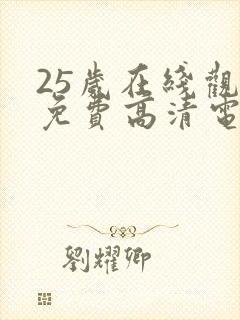 25歲在綫觀
免費高清電
劉耀卿